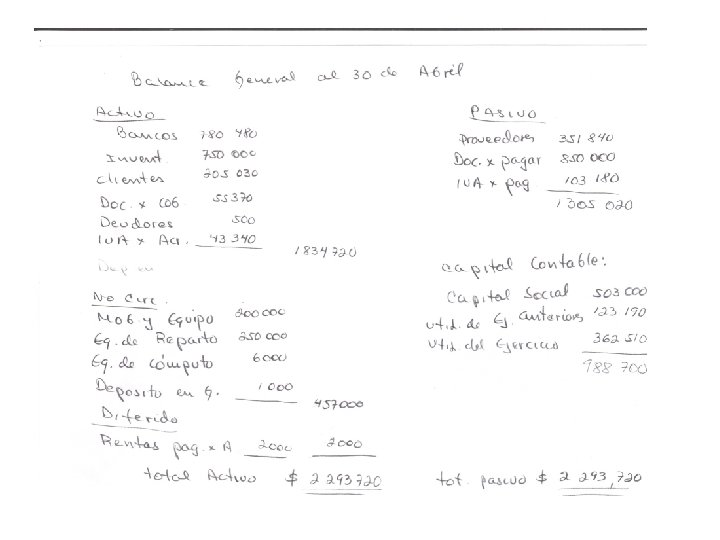 Balance General al 30 de Abril
Activo
Bancos 780 480
Invent. 750 000
Clientes 205 030
Doc. x Cob 55370
Deudores 500
IVA x Acr. 43 340
1834720
No Circ.
Mob y Equipo 200000
Eq. de Reparto 250 000
Eq. de Cómputo 6000
Deposito en G. 1000
457000
Diferido
Rentas pag. x A 2000 2000
total Activo $ 2 293720
PASIVO
Proveedores 351 840
Doc. x pagar 850 000
IVA x pag 103 180
1305 020
Capital Contable:
Capital Social 503 000
Utid. de Ej. Anteriores 123 190
Utid del Ejercicio 362 510
988 700
tot. pasivo $ 2 293,720